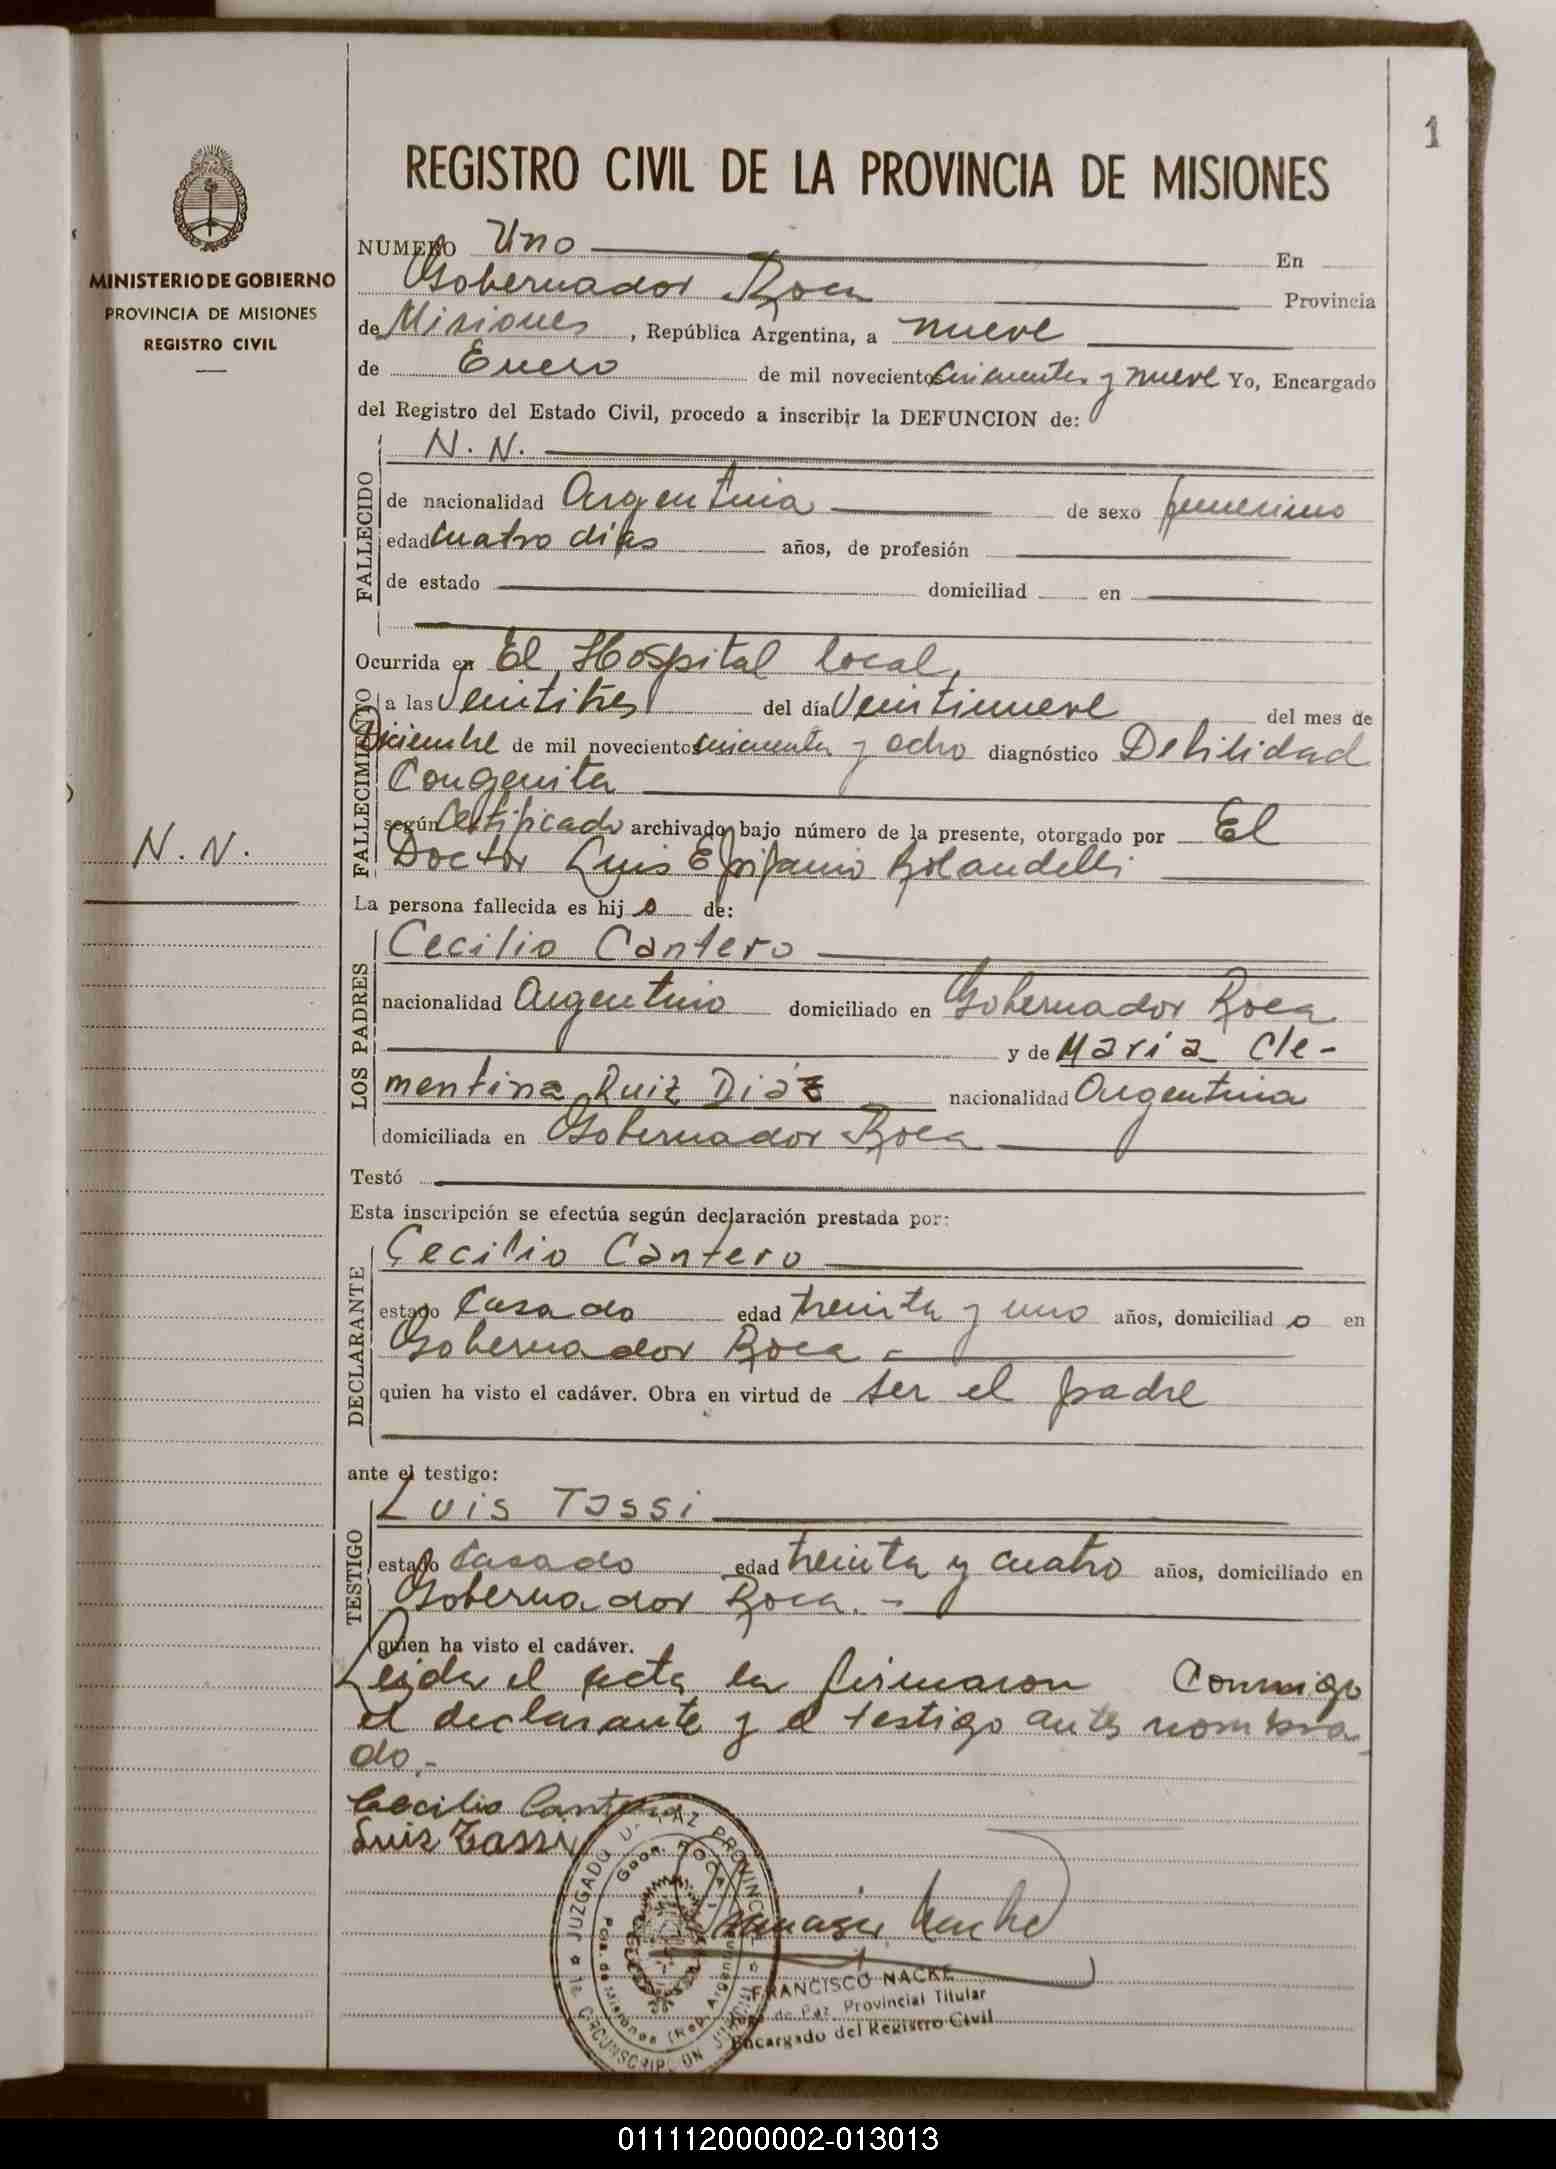 1
REGISTRO CIVIL DE LA PROVINCIA DE MISIONES
MINISTERIO DE GOBIERNO
PROVINCIA DE MISIONES
REGISTRO CIVIL
NUMERO Uno En
Gobernador Roca Provincia
de Misiones, República Argentina, a nueve
de Enero de mil novecientos cincuenta y nueve Yo, Encargado
del Registro del Estado Civil, procedo a inscribir la DEFUNCION de:
FALLECIDO
N. N.
de nacionalidad Argentina de sexo femenino
edad cuatro días años, de profesión
de estado domiciliad en
Ocurrida en El Hospital local,
FALLECIMIENTO
a las Veintitres del día Veintinueve del mes de
Diciembre de mil novecientos cincuenta y ocho diagnóstico Debilidad
Congenita
según Certificado archivado bajo número de la presente, otorgado por El
Doctor Luis Epifanio Rolandelli
N. N.
La persona fallecida es hij a de:
LOS PADRES
Cecilio Cantero
nacionalidad Argentino domiciliado en Gobernador Roca
y de Maria Cle-
mentina Ruiz Diaz nacionalidad Argentina
domiciliada en Gobernador Roca
Testó
Esta inscripción se efectúa según declaración prestada por:
DECLARANTE
Cecilio Cantero
estado Casado edad treinta y uno años, domiciliad o en
Gobernador Roca -
quien ha visto el cadáver. Obra en virtud de ser el padre
ante el testigo:
TESTIGO
Luis Tassi
estado Casado edad treinta y cuatro años, domiciliado en
Gobernador Roca. -
quien ha visto el cadáver.
Leida el acta la firmaron Conmigo
el declarante y el testigo antes nombra
do.-
Cecilio Cantero
Luis Tassi
JUZGADO DE PAZ PROVINCIAL
Gdor. ROCA
Pcia. de Misiones (Rep. Argentina)
1a. CIRCUNSCRIPCION JUDICIAL
FRANCISCO NACKE
de Paz Provincial Titular
Encargado del Registro Civil
011112000002-013013